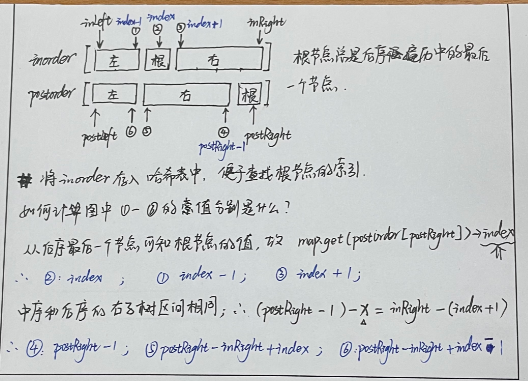 inleft index-1 index index+1 inRight
① ② ③
inorder [ 左 根 右 ] 根节点总是后序遍历中的最后
postorder [ 左 右 根 ] 一个节点.
postleft ⑥ ⑤ ④ postRight
postRight-1
# 将inorder存入哈希表中, 便于查找根节点的索引.
如何计算图中①-⑥的值分别是什么?
从后序最后一个节点可知根节点的值, 故 map.get(postorder[postRight])→index
∴ ②: index ; ① index-1 ; ③ index+1 ;
中序和后序的右子树区间相同; ∴ (postRight-1)-x = inRight-(index+1)
∴ ④: postRight-1 ; ⑤ postRight-inRight+index ; ⑥: postRight-inRight+index-1